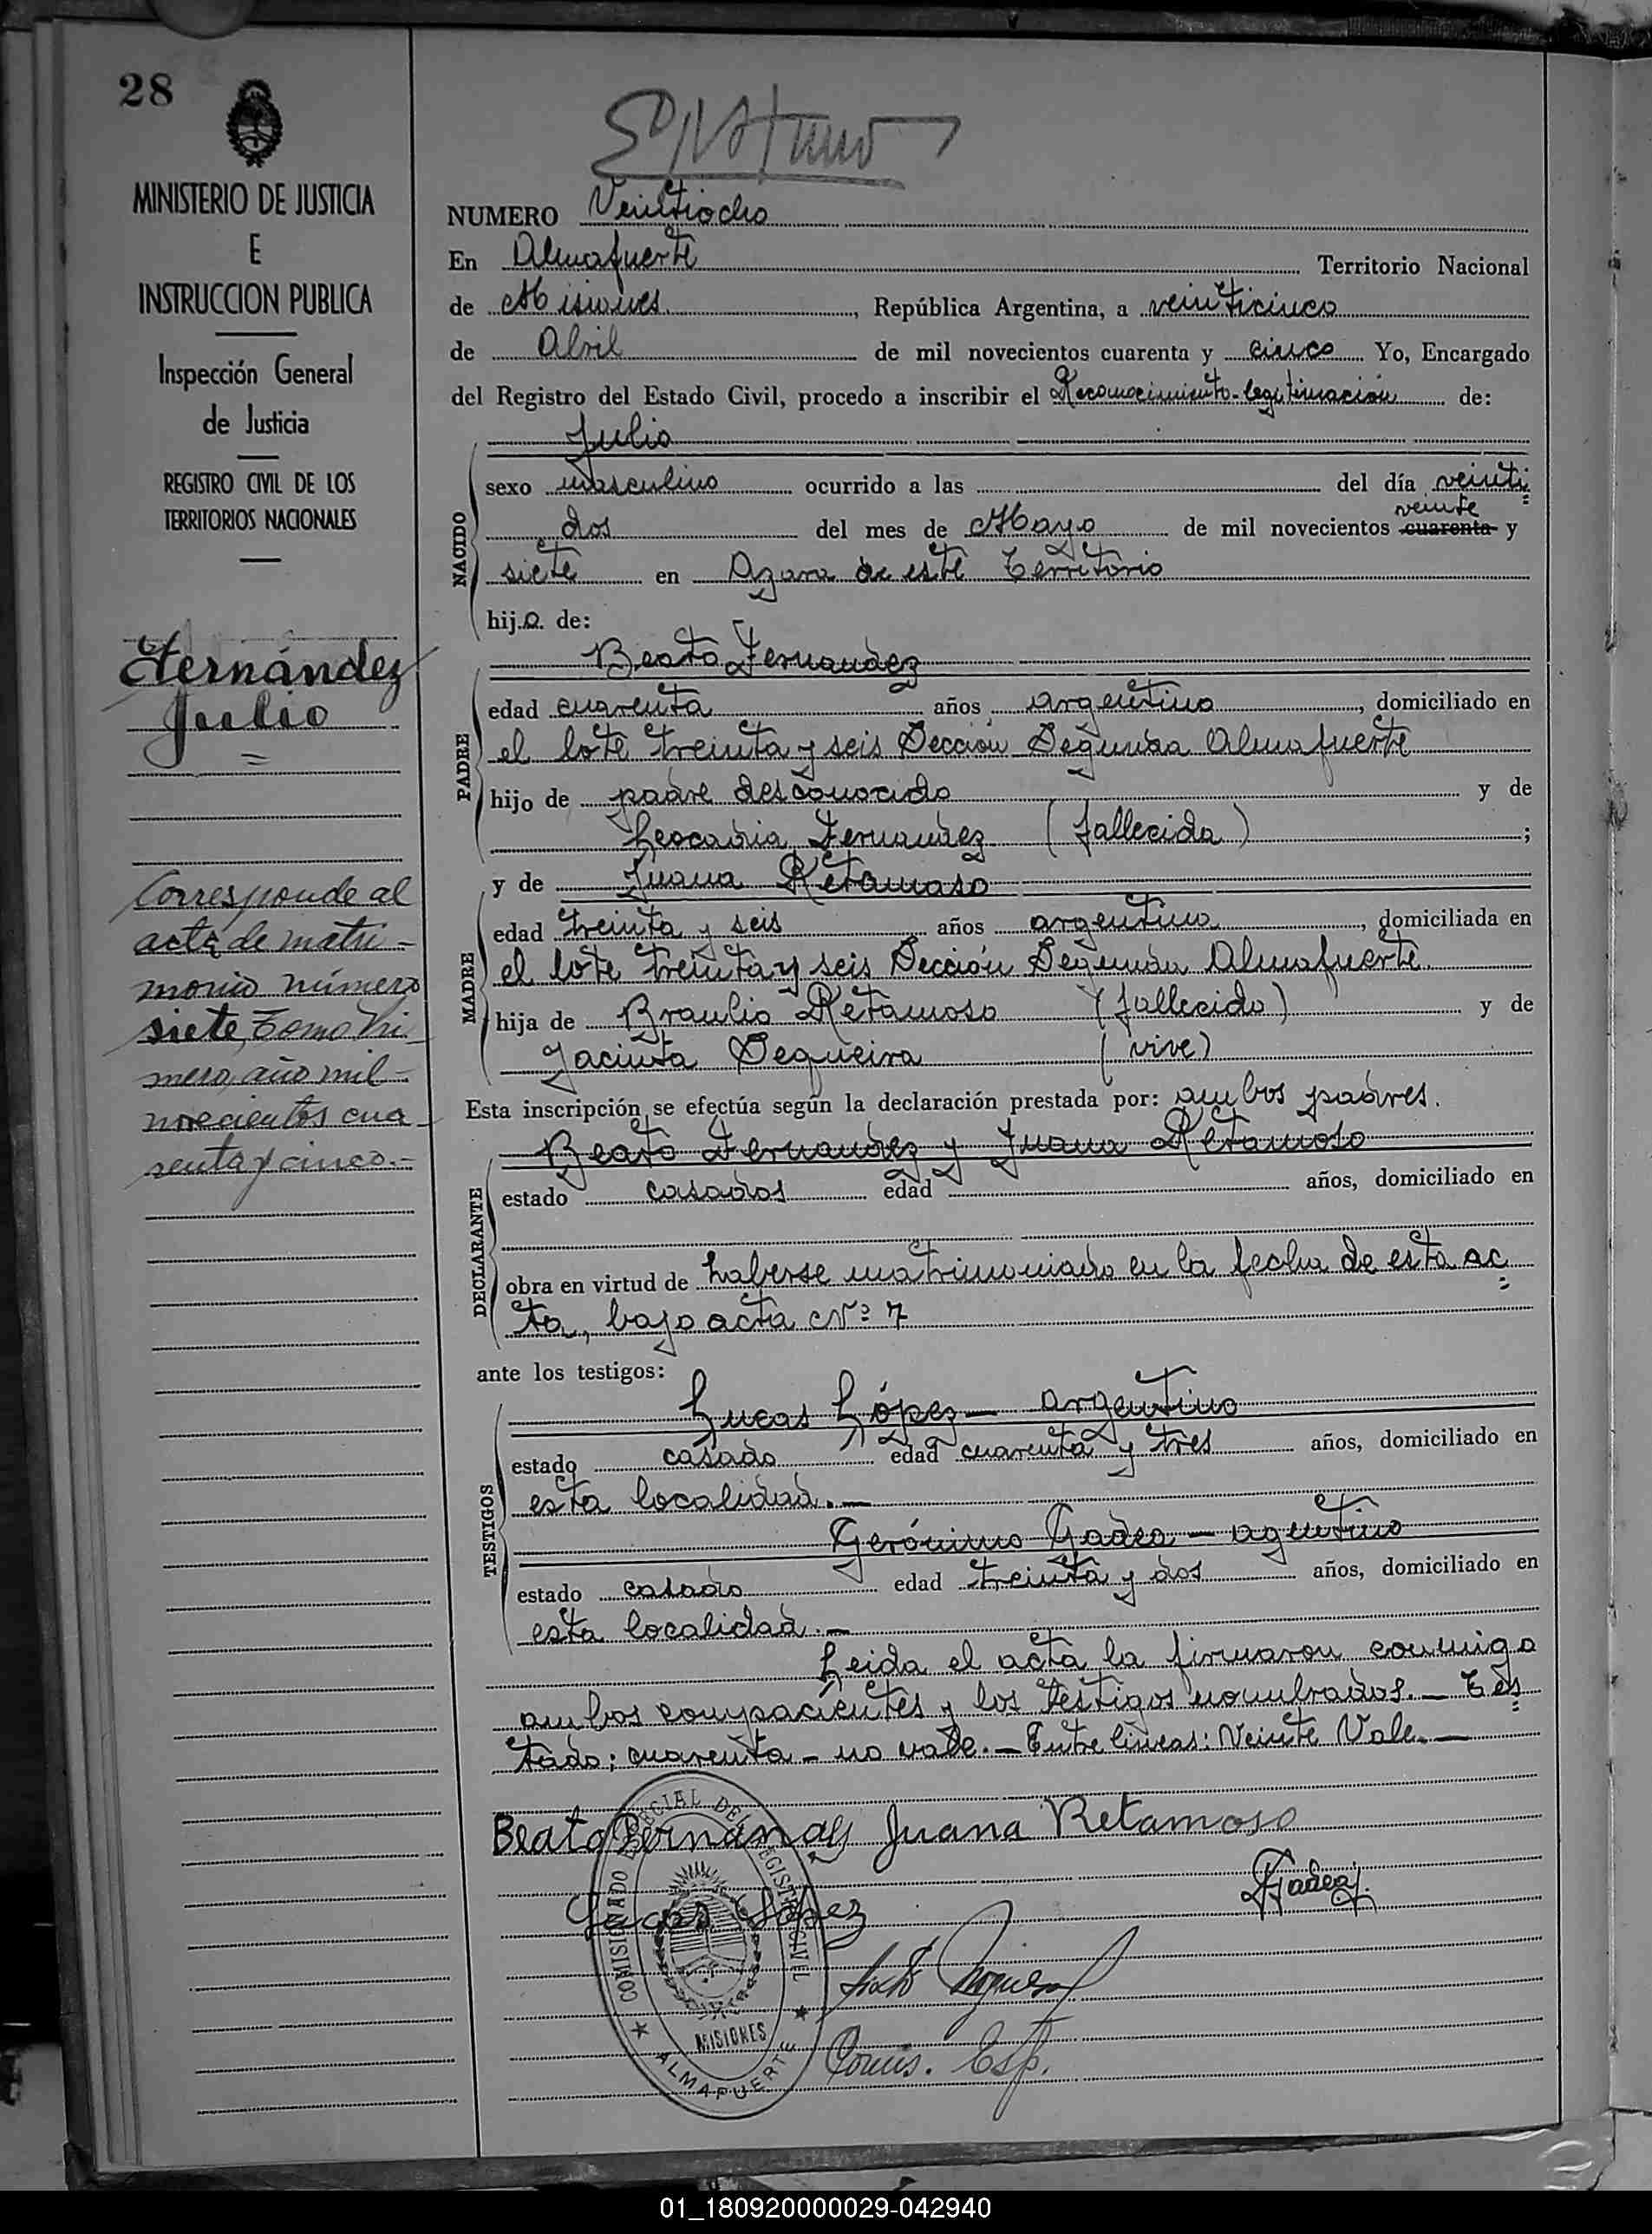 28
MINISTERIO DE JUSTICIA
E
INSTRUCCION PUBLICA
Inspección General
de Justicia
REGISTRO CIVIL DE LOS
TERRITORIOS NACIONALES
Fernández
Julio
Corresponde al
acta de matri-
monio número
siete, Tomo Pri
mero, año mil-
novecientos cua
renta y cinco.-
NUMERO Veintiocho
En Almafuerte Territorio Nacional
de Misiones, República Argentina, a veinticinco
de Abril de mil novecientos cuarenta y cinco Yo, Encargado
del Registro del Estado Civil, procedo a inscribir el Reconocimiento-legitimación de:
Julio
NACIDO
sexo masculino ocurrido a las del día veinti
veinte
dos del mes de Mayo de mil novecientos cuarenta y
siete en Azara de este Territorio
hijo de:
Beato Fernandez
PADRE
edad cuarenta años argentino, domiciliado en
el lote treinta y seis Sección Segunda Almafuerte
hijo de padre desconocido y de
Leocadia Fernandez (fallecida);
y de Juana Retamoso
MADRE
edad treinta y seis años argentina, domiciliada en
el lote treinta y seis Sección Segunda Almafuerte.
hija de Braulio Retamoso (fallecido) y de
Jacinta Sequeira (vive)
Esta inscripción se efectúa según la declaración prestada por: ambos padres.
Beato Fernandez y Juana Retamoso
DECLARANTE
estado casados edad años, domiciliado en
obra en virtud de haberse matrimoniado en la fecha de esta ac
ta, bajo acta Nº 7
ante los testigos:
Lucas López - argentino
TESTIGOS
estado casado edad cuarenta y tres años, domiciliado en
esta localidad.-
Gerónimo Gadea - agentino
estado casado edad treinta y dos años, domiciliado en
esta localidad.-
Leida el acta la firmaron conmigo
ambos compacientes y los testigos nombrados.- Tes
tado: cuarenta - no vale.- Entre líneas: Veinte Vale.-
Beato Fernandes Juana Retamoso
Gadea
Lucas Lópes
Comis. Esp.
COMISIONADO ESPECIAL DEL REGISTRO CIVIL
MISIONES
ALMAFUERTE
01_180920000029-042940